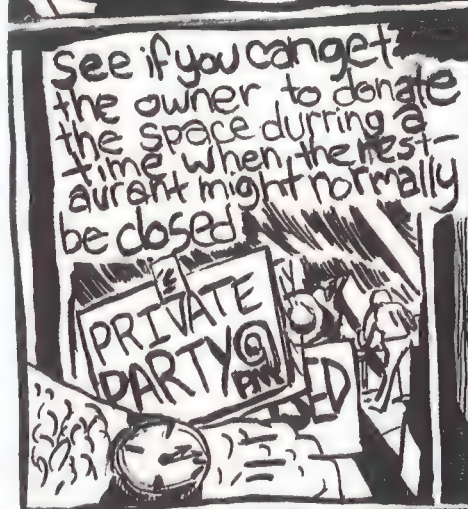 See if you can get
the owner to donate
the space durring a
time when the rest-
aurant might normally
be closed
PRIVATE
PARTY @
PM
SED